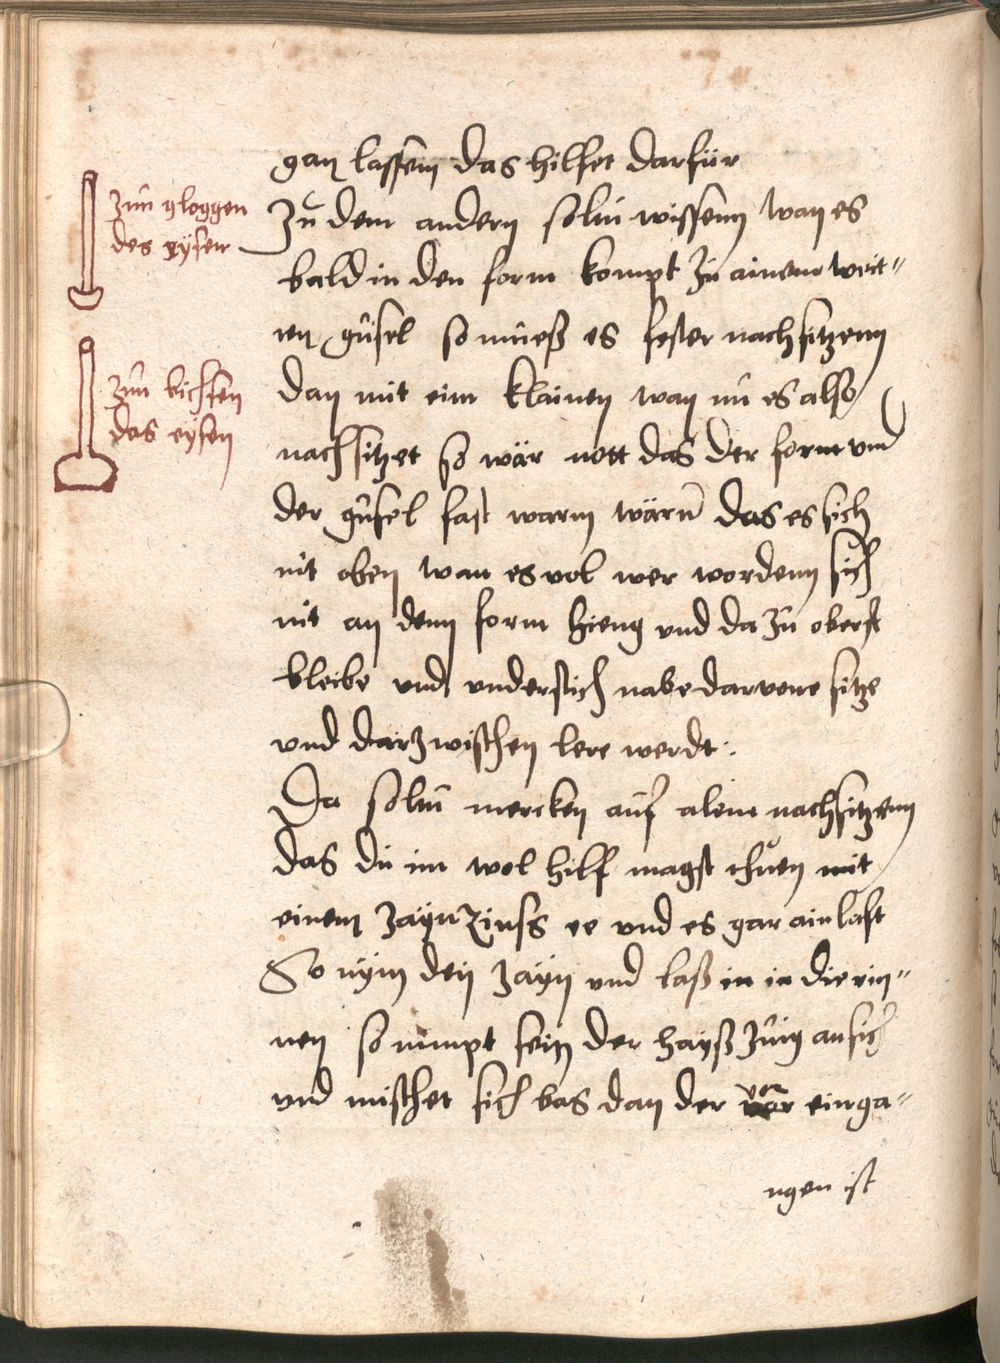 zuͦn gloggen
des eÿsen
zuͦn bichsen
das eÿsen
gan lassenn das hilfet darfür
Zuͦ dem andern soltu wissenn wan es
bald in den form kompt zu ainem weit„
en guͦsel so muͦeß es fester nachsitzenn
dan mit eim klainen wan nuͦ es also
nachsitzet so wär nott das der form und
der guͦsel fast warm wärn̄ das es sich
nit oben wan es vol wer wordenn sich
nit an denn form hieng und da zuͦ oberst
bleibe und understich nabe darvone sitze
und darzwischen lere werdt :.
Da soltu mercken auf alem nachsitzenn
das du im wol hilf magst thuͦen mit
einem zaÿn zinss ee und es gar ainlaft
So nÿm den zaÿn und laß in in die rin„
nen so nimpt sein der haÿß zuͦig an sich
und mischet sich bas dan der vor einga„
ngen ist